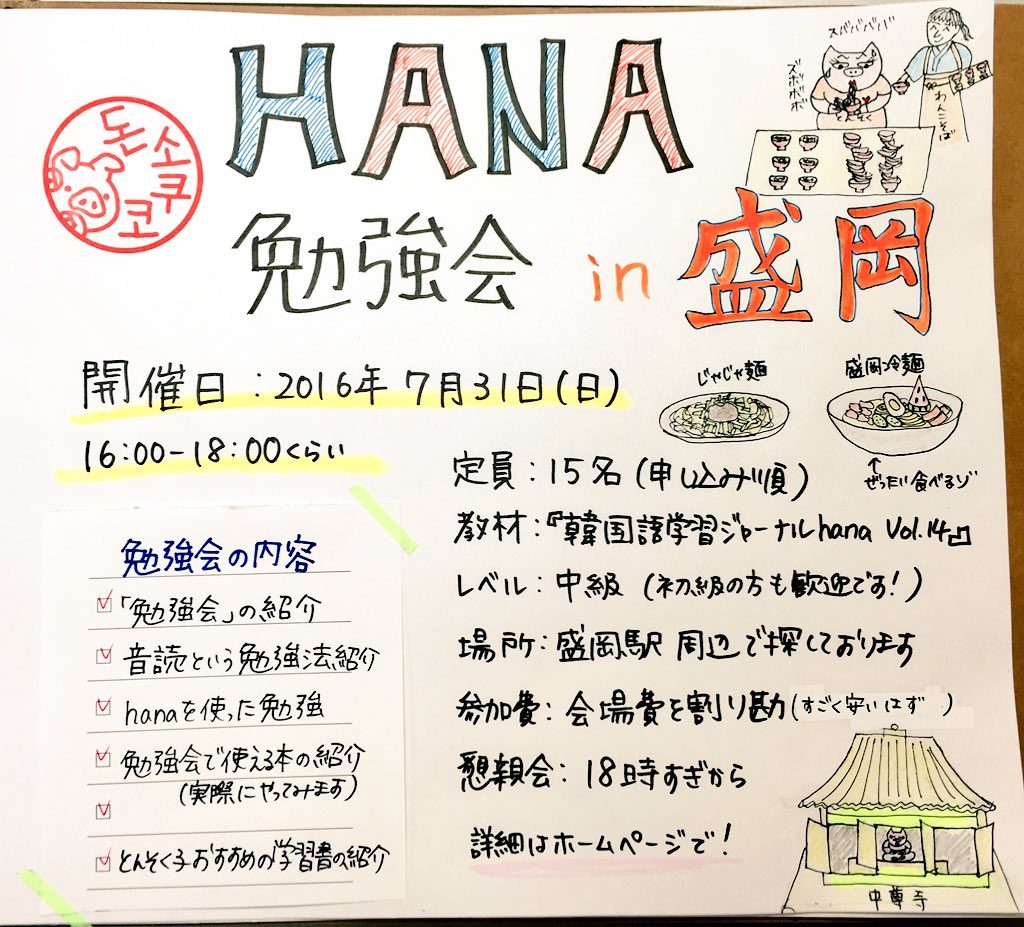 HANA
돈
소
쿠
코
スバババババ
ズボボボボ
わんこそば
勉強会 in 盛岡
開催日:2016年 7月31日(日)
16:00-18:00くらい
じゃじゃ麺
盛岡冷麺
↑
ぜったい食べるゾ
定員:15名(申し込み順)
教材:『韓国語学習ジャーナルhana Vol.14』
レベル:中級(初級の方も歓迎です!)
場所:盛岡駅 周辺で探しております
参加費:会場費を割り勘(すごく安いはず )
懇親会:18時すぎから
詳細はホームページで!
勉強会の内容
「勉強会」の紹介
音読という勉強法紹介
hanaを使った勉強
勉強会で使える本の紹介
(実際にやってみます)
とんそく子おすすめの学習書の紹介
中尊寺